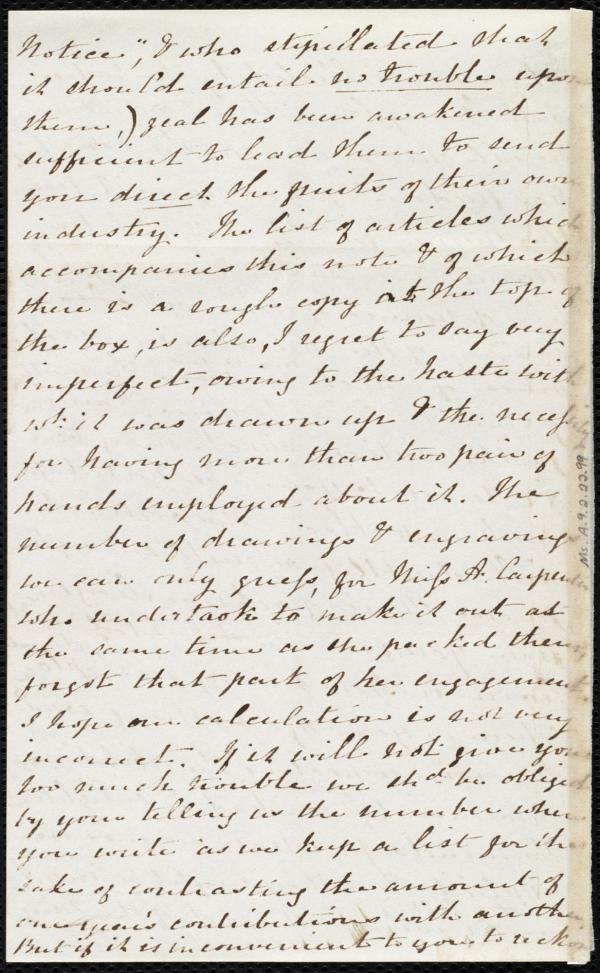 Notice", & who stipulated that
it should entail no trouble upon
them,) zeal has been awakened
sufficient to lead them to send
you direct the fruits of their own
industry. The list of articles which
accompanies this note & of which
there is a rough copy at the top of
the box, is also, I regret to say very
imperfect, owing to the haste with
wh: it was drawn up & the necessity
for having more than two pair of
hands employed about it. The
number of drawings & engravings
we can only guess, for Miss A. Carpenter
who undertook to make it out at
the same time as she packed them,
forgot that part of her engagement.
I hope our calculation is not very
incorrect. If it will not give you
too much trouble we shd. be obliged
by your telling us the number when
you write as we keep a list for the
sake of contrasting the amount of
one year's contributions with another
But if it is inconvenient to you to reckon
Ms. A.9.2.22.99